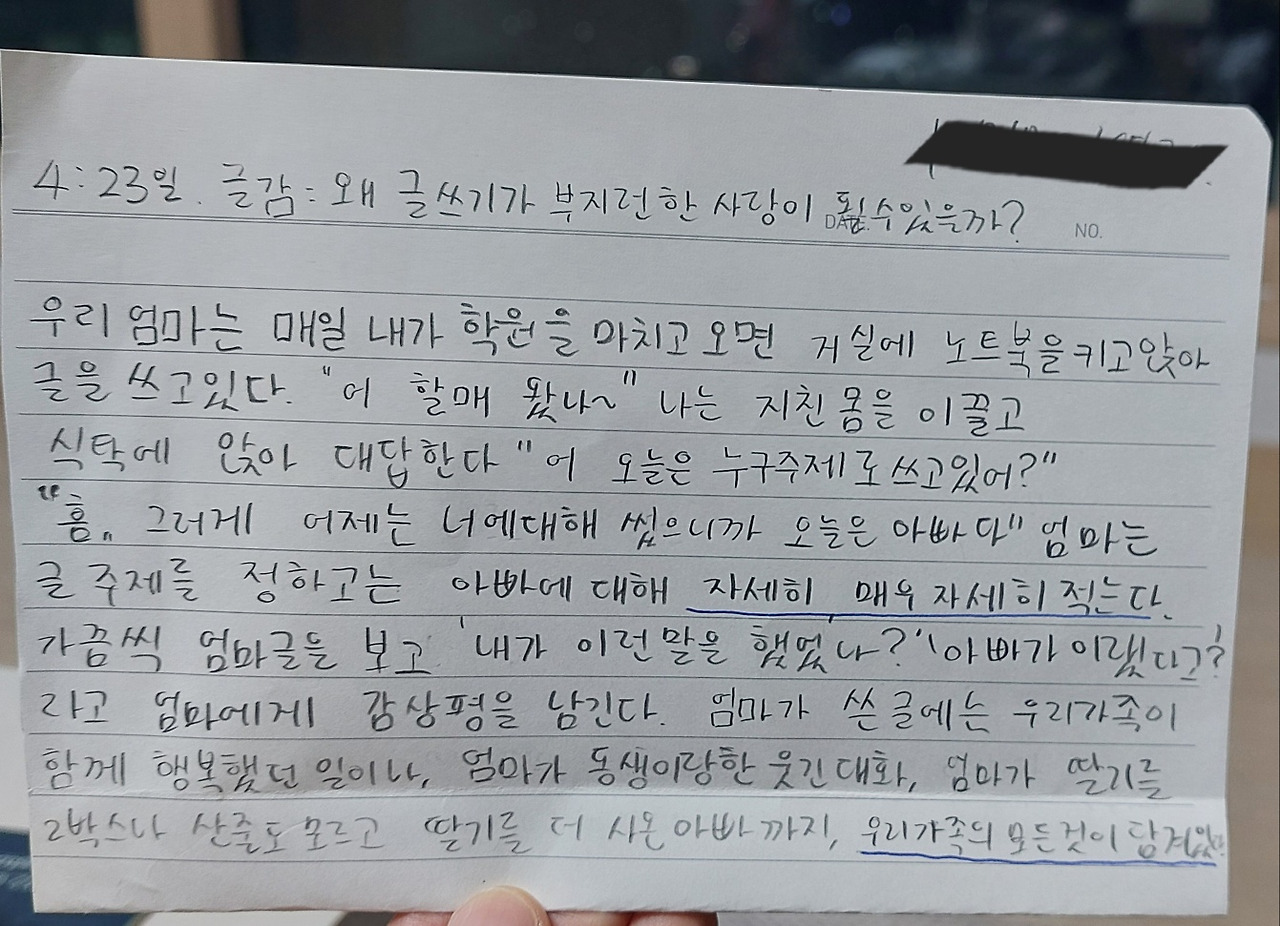 4:23일. 글감: 왜 글쓰기가 부지런한 사람이 될수있을까?
DATE. NO.
우리 엄마는 매일 내가 학원을 마치고오면 거실에 노트북을키고앉아
글을 쓰고있다. "어 할매 왔나~" 나는 지친몸을 이끌고
식탁에 앉아 대답한다 "어 오늘은 누구주제로쓰고있어?"
"흠.. 그러게 어제는 너에대해 썼으니까 오늘은 아빠다" 엄마는
글 주제를 정하고는 아빠에 대해 자세히 매우 자세히 적는다.
가끔씩 엄마글을 보고 '내가 이런말을 했었나?' '아빠가 이랬다고?
라고 엄마에게 감상평을 남긴다. 엄마가 쓴글에는 우리가족이
함께 행복했던 일이나, 엄마가 동생이랑한 웃긴대화, 엄마가 딸기를
2박스나 산줄도모르고 딸기를 더 사온 아빠까지, 우리가족의 모든것이 담겨있다.